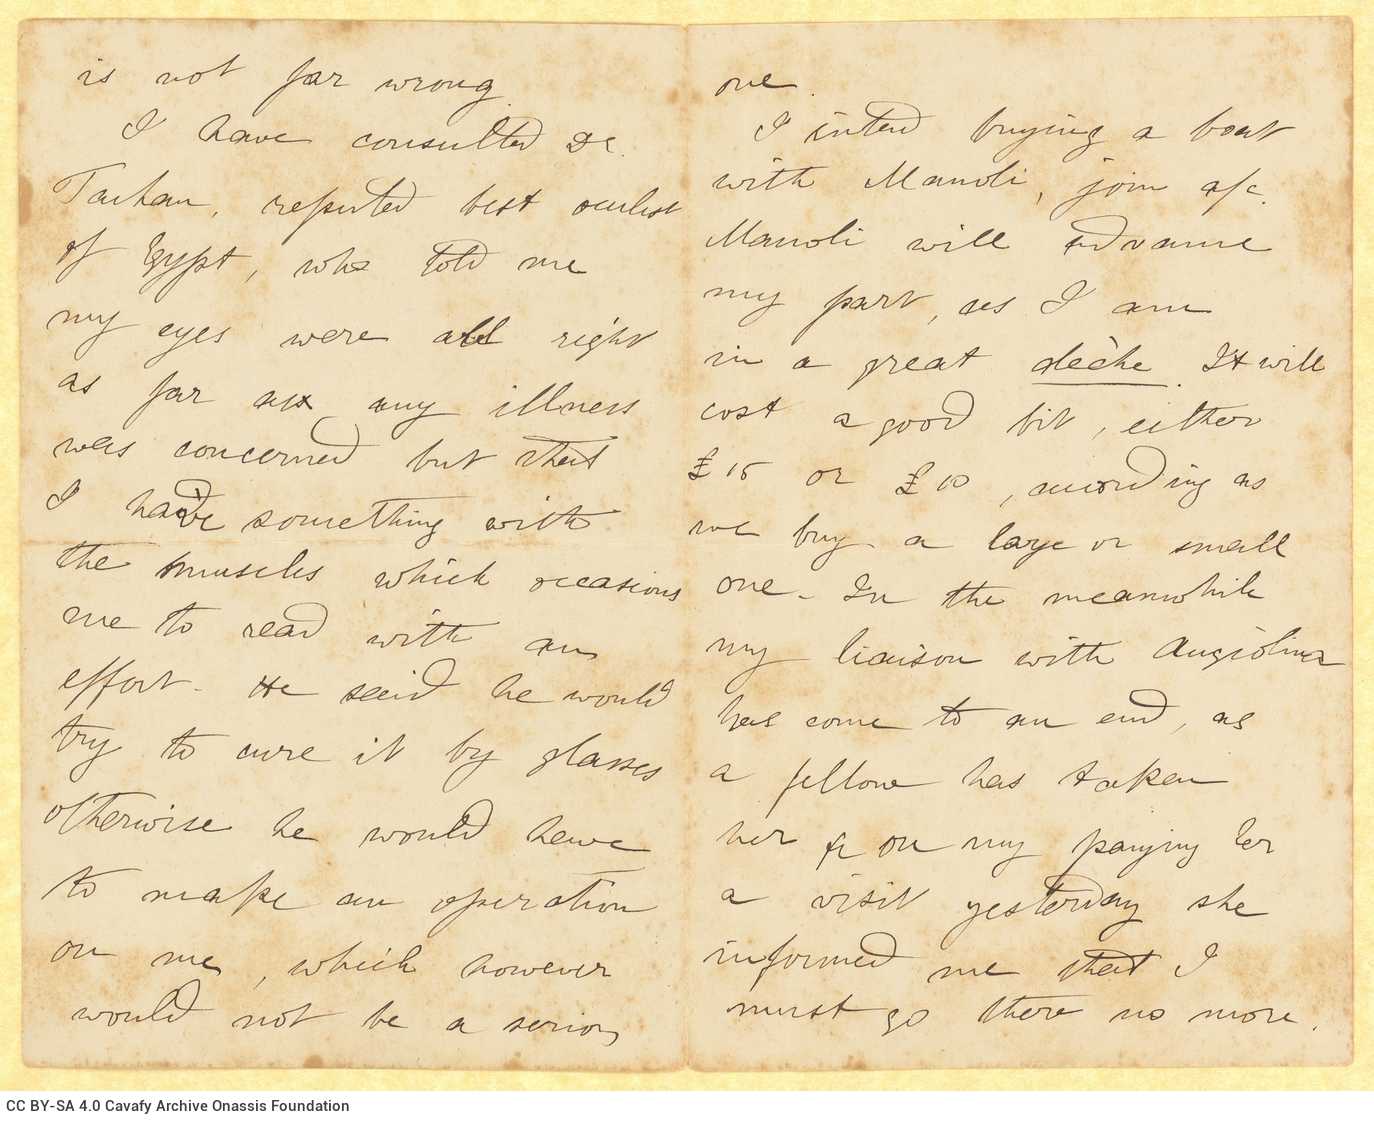 is not far wrong.
I have consulted Dr.
Tachau, reputed best oculist
of Egypt, who told me
my eyes were all right
as far as any illness
was concerned but that
I have something with
the muscles which occasions
me to read with an
effort. He said he would
try to cure it by glasses
otherwise he would have
to make an operation
on me, which however
would not be a serious
one.
I intend buying a boat
with Manoli, join a/c.
Manoli will advance
my part, as I am
in a great dèche. It will
cost a good bit, either
£15 or £10, according as
we buy a large or small
one. In the meanwhile
my liaison with Angiolina
has come to an end, as
a fellow has taken
her & on my paying her
a visit yesterday she
informed me that I
must go there no more.
CC BY-SA 4.0 Cavafy Archive Onassis Foundation